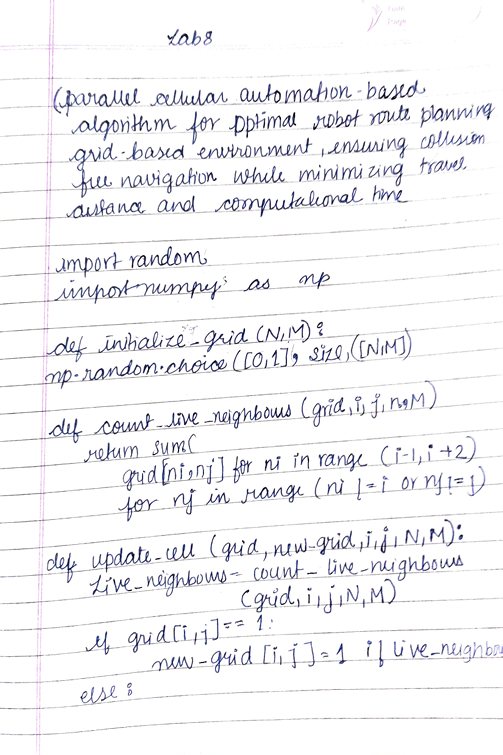 Lab 8
(parallel cellular automation-based
algorithm for optimal robot route planning
grid-based environment, ensuring collision
free navigation while minimizing travel
distance and computational time
import random
import numpy as np
def initialize_grid (N,M):
np.random.choice ([0,1], size, ([N,M])
def count_live_neighbours (grid, i, j, n, M)
return sum(
grid[ni,nj] for ni in range (i-1, i+2)
for nj in range (ni != i or nj != j)
def update_cell (grid, new-grid, i, j, N, M):
Live_neighbours = count_live_neighbours
(grid, i, j, N, M)
if grid[i,j] == 1:
new-grid [i,j] = 1 if live_neighbou
else :